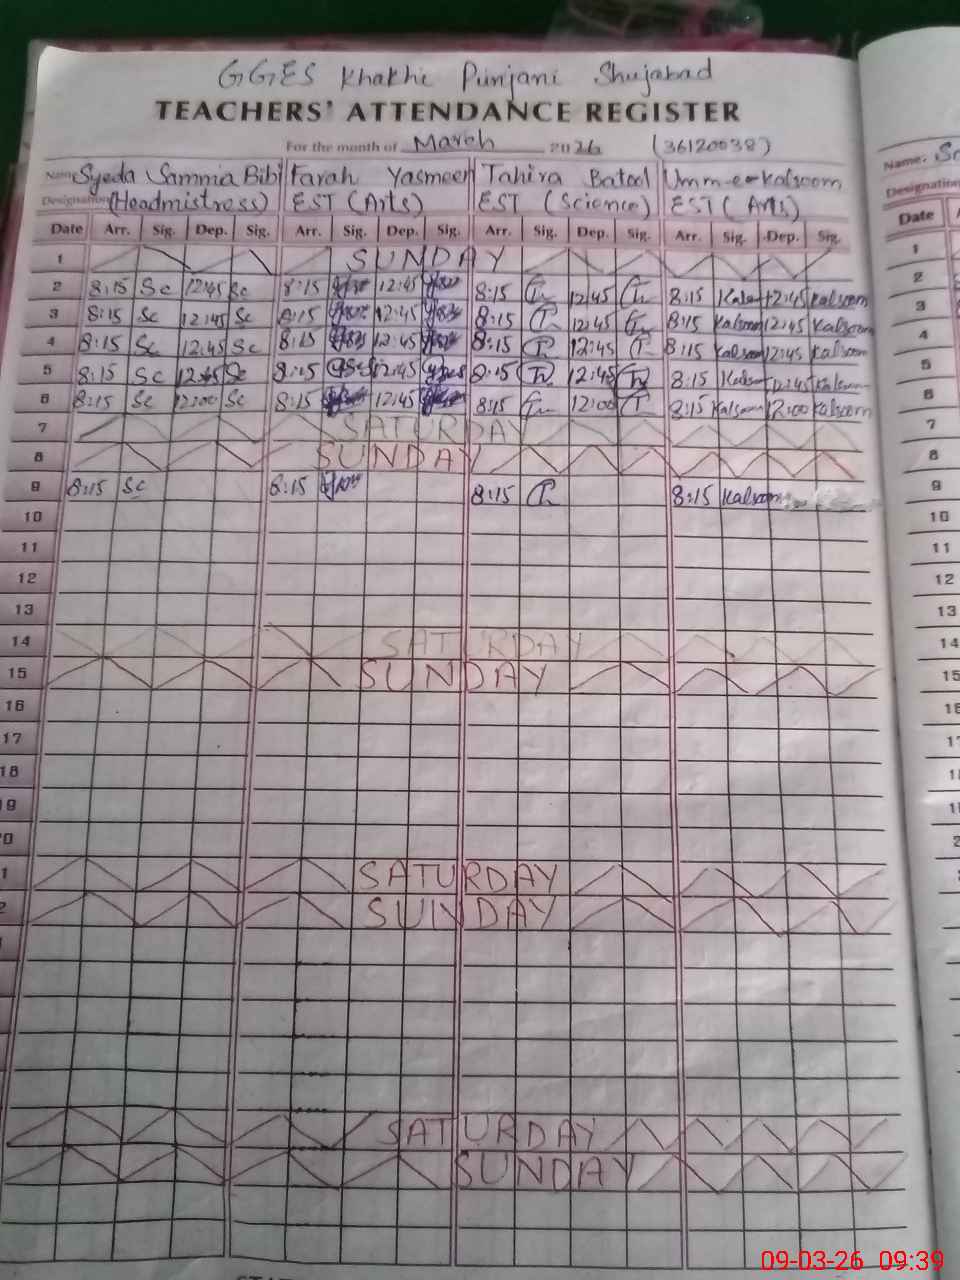 GGES Khakhi Punjani Shujabad
TEACHERS' ATTENDANCE REGISTER
For the month of March 2026 (36120038)
Name Syeda Sammia Bibi Farah Yasmeen Tahira Batool Umm-e-Kalsoom
Designation (Headmistress) EST (Arts) EST (Science) EST (Arts)
Date Arr. Sig. Dep. Sig. Arr. Sig. Dep. Sig. Arr. Sig. Dep. Sig. Arr. Sig. Dep. Sig.
1 SUNDAY
2 8:15 Sc 12:45 Sc 8:15 12:45 8:15 12:45 8:15 Kalsoom 12:45 Kalsoom
3 8:15 Sc 12:45 Sc 8:15 12:45 8:15 12:45 8:15 Kalsoom 12:45 Kalsoom
4 8:15 Sc 12:45 Sc 8:15 12:45 8:15 12:45 8:15 Kalsoom 12:45 Kalsoom
5 8:15 Sc 12:45 Sc 8:15 12:45 8:15 12:45 8:15 Kalsoom 12:45 Kalsoom
6 8:15 Sc 12:00 Sc 8:15 12:45 8:15 12:00 8:15 Kalsoom 12:00 Kalsoom
7 SATURDAY
8 SUNDAY
9 8:15 Sc 8:15 8:15 8:15 Kalsoom
10
11
12
13
14 SATURDAY
15 SUNDAY
16
17
18
19
0
1 SATURDAY
2 SUNDAY
SATURDAY
SUNDAY
Name:
Designation
Date
1
2
3
4
5
6
7
8
9
10
11
12
13
14
15
09-03-26 09:39